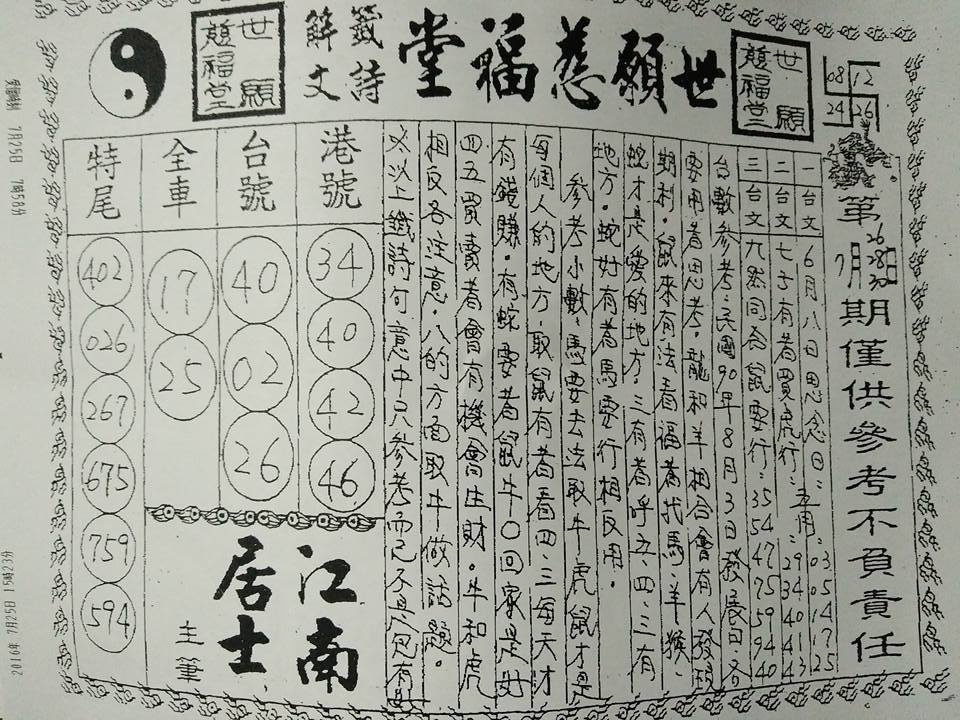 世願慈福堂
籤詩解文
世願慈福堂
世願慈福堂
08 12
24 26
第
7月26 28 30日
期僅供參考不負責任
一台文 6月八日思念日:五月:03 05 14 17 25
二台文 七子有者買虎行:29 34 40 44
三台文 九然同合鼠要行:35 54 47 75 59 94 40
台數參考:民國90年8月3日發展日,各
要用者思考,龍和羊相合會有人發現
期刺,鼠來有法看福者找馬、羊猴、
蛇才是旁的地方,三有者呼五、四、三有
地方,蛇好有者馬要行相反用。
參考小數、馬要去法取牛、虎鼠才是
每個人的地方取鼠有者看四、三每天才
有錢賺。有蛇要者鼠牛〇回家是好
四五買賣者會有機會生財。牛和虎
相反各注意。八的方面取牛做話題。
以以上籤詩何意中只參考而已不具包有
港號
34
40
42
46
台號
40
02
26
全車
17
25
特尾
402
026
267
675
759
594
江南居士
主筆
7月25日 7時58分
2016年 7月25日 15時23分